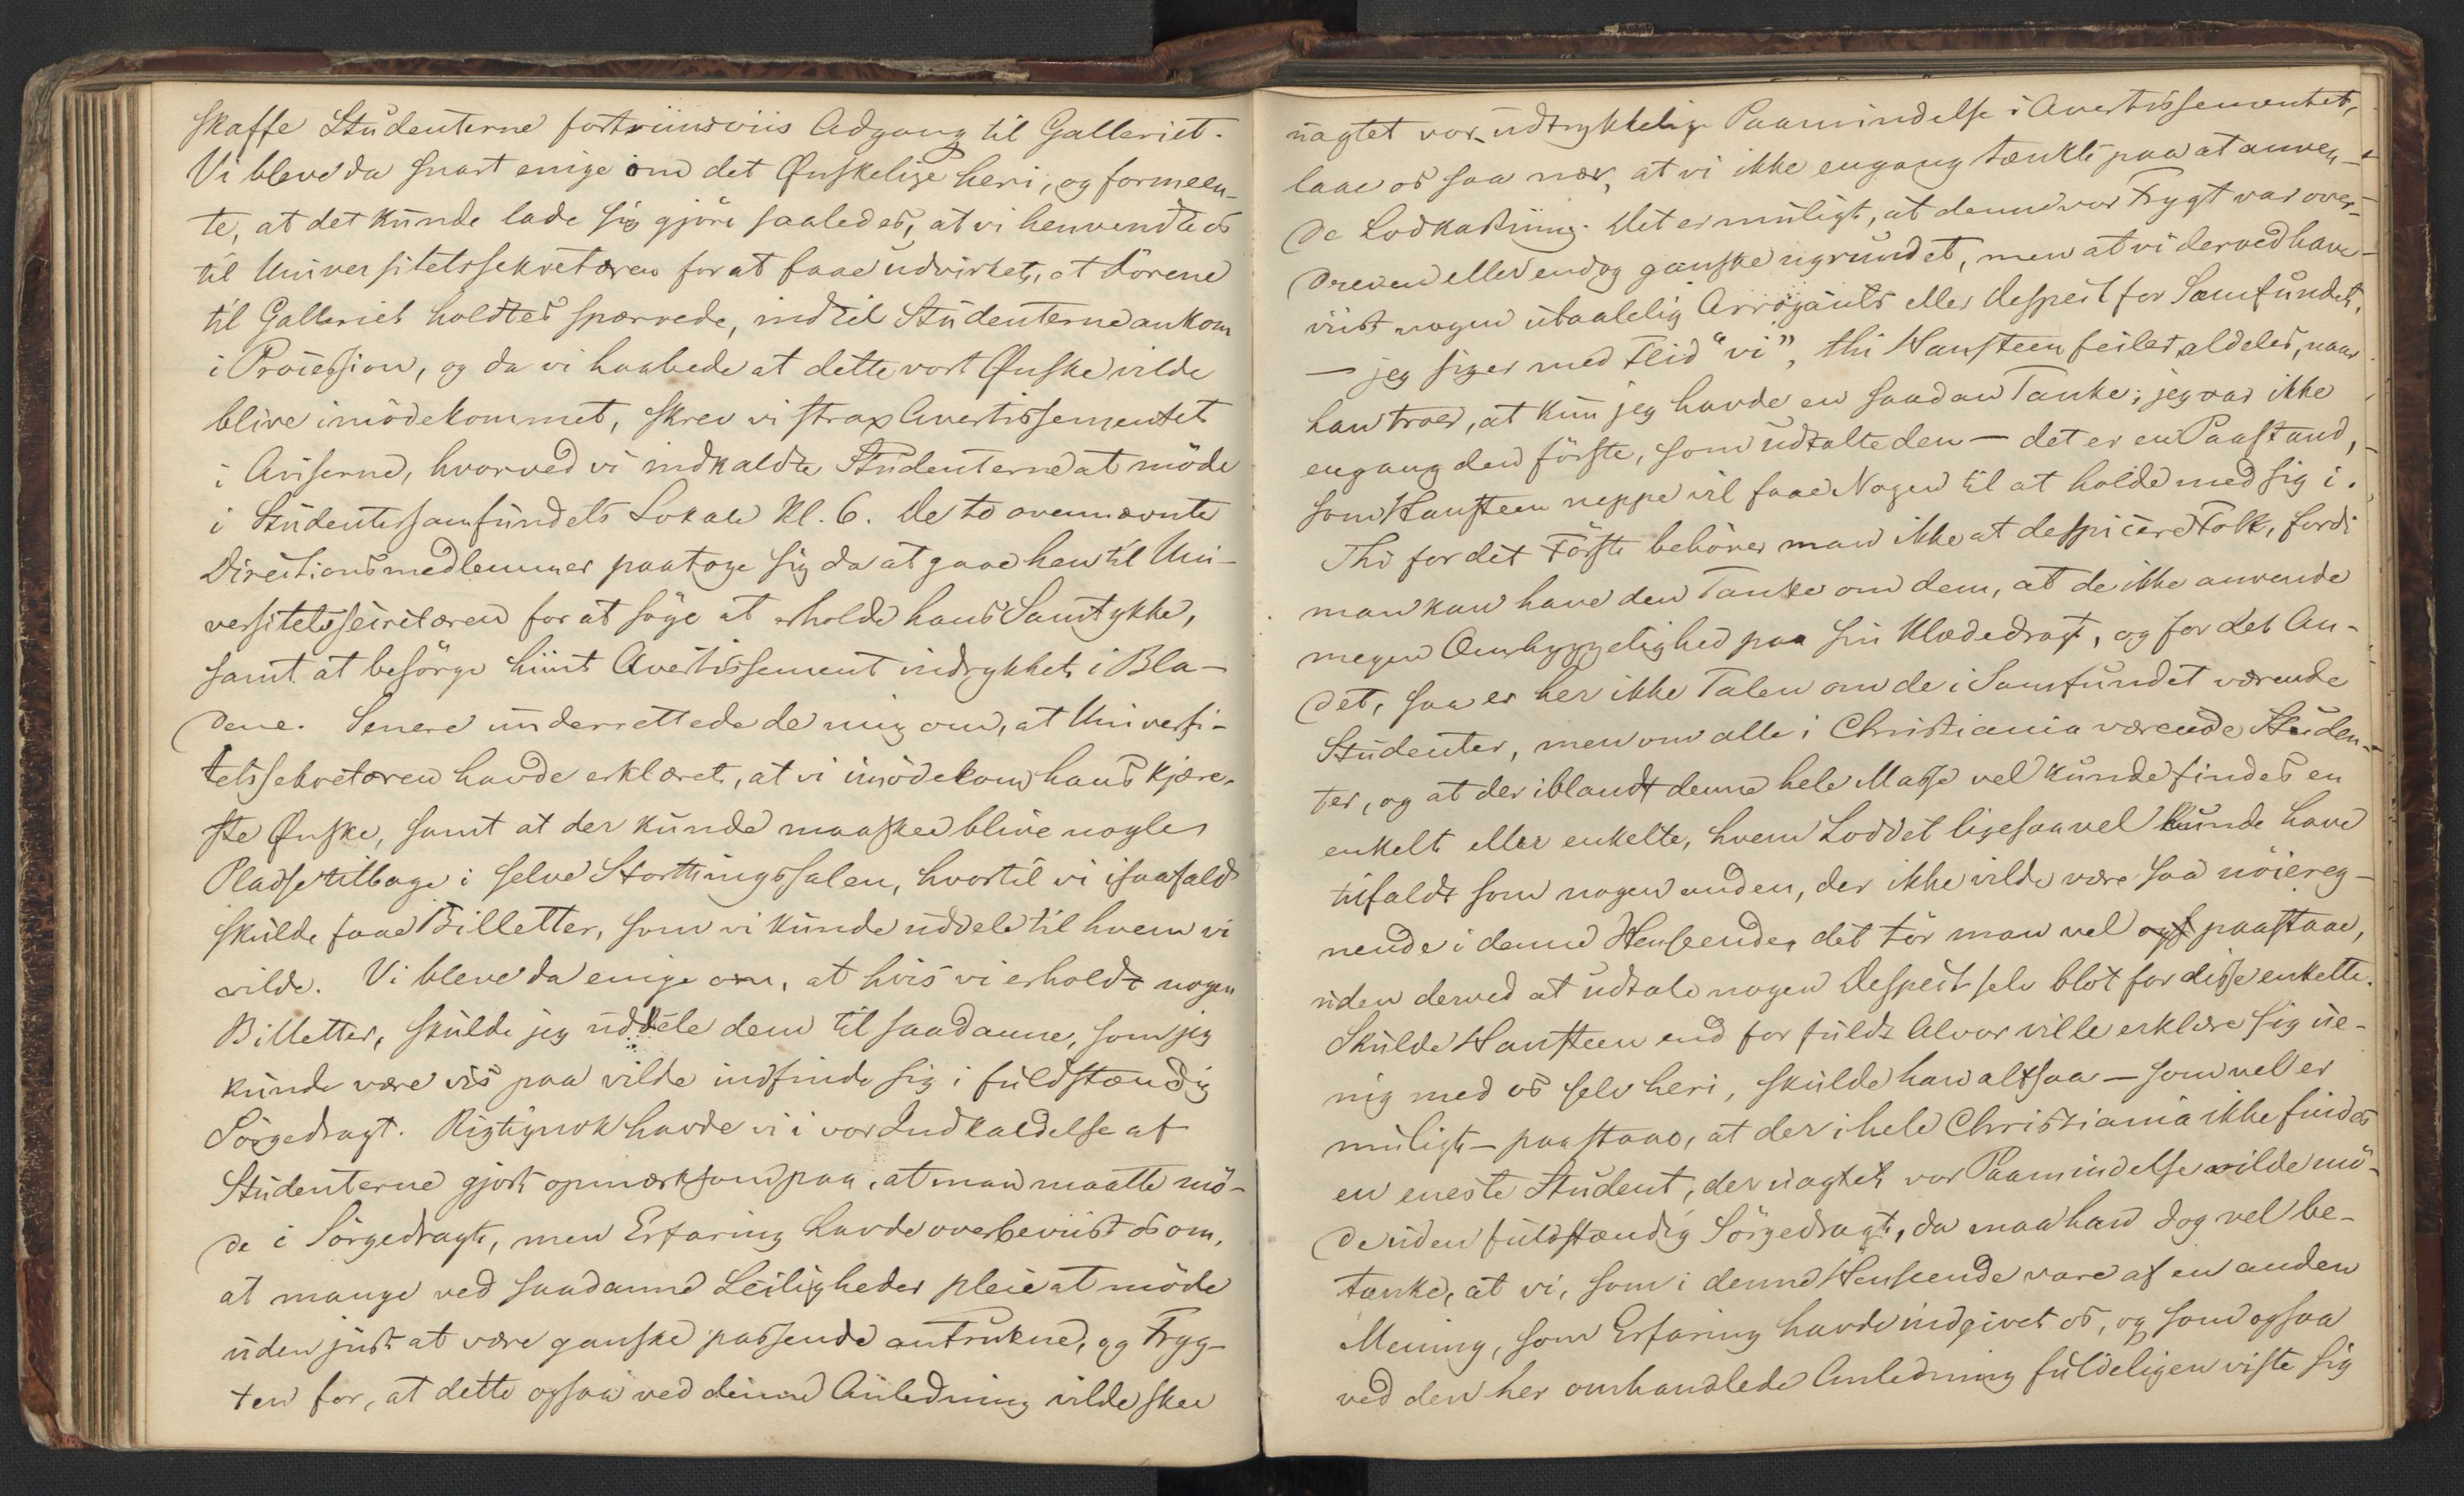 skaffe Studenterne fortrinsviis Adgang til Galleriet.
Vi bleve da snart enige om det Ønskelige heri, og formeen-
te, at det kunde lade sig gjöre saaledes, at vi henvendte os
til Universitetssekretæren for at faae udvirket, at Dörene
til Galleriet holdtes spærrede, indtil Studenterne ankom
i Procession, og da vi haabede at dette vort Ønske vilde
blive imödekommet, skrev vi strax Avertissementet
i Aviserne, hvorved vi indkaldte Studenterne at möde
i Studentersamfundets Lokale Kl. 6. De to ovennævnte
Directionsmedlemmer paatoge sig da at gaae hen til Uni-
versitetssecretæren for at söge at erholde hans Samtykke,
samt at besörge hiint Avertissement indrykket i Bla-
dene. Senere underrettede de mig om, at Universi-
tetssekretæren havde erklæret, at vi imödekom hans kjære-
ste Ønske, samt at der kunde maaskee blive nogle
Pladse tilbage i selve Storthingssalen, hvortil vi isaafald
skulde faae Billetter, som vi kunde uddele til hvem vi
vilde. Vi bleve da enige om, at hvis vi erholdt nogen
Billetter, skulde jeg uddele dem til saadanne, som jeg
kunde være vis paa vilde indfinde sig i fuldstændig
Sörgedragt. Rigtignok havde vi i vor Indkaldelse af
Studenterne gjort opmærksom paa, at man maatte mö-
de i Sörgedragt, men Erfaring havde overbeviist os om,
at mange ved saadanne Leiligheder pleie at möde
uden just at være ganske passende antrukne, og Fryg-
ten for, at dette ogsaa ved denne Anledning vilde skee
uagtet vor udtrykkelige Paamindelse i Avertissementet,
laae os saa nær, at vi ikke engang tænkte paa at anven-
de Lodkastning. Det er muligt, at denne vor Frygt var over-
dreven eller endog ganske ugrundet, men at vi derved have
viist nogen utaalelig Arrogants eller Despect for Samfundet,
— jeg siger med Flid "vi", thi Hansteen feiler aldeles, naar
han troer, at kun jeg havde en saadan Tanke; jeg var ikke
engang den förste, som udtalte den — det er en Paastand,
som Hansteen neppe vil faae Nogen til at holde med sig i.
Thi for det Förste behöver man ikke at despicere Folk, fordi
man kan have den Tanke om dem, at de ikke anvende
megen Omhyggelighed paa sin Klædedragt, og for det An-
det, saa er her ikke Talen om de i Samfundet værende
Studenter, men om alle i Christiania værende Studen-
ter, og at der iblandt denne hele Masse vel kunde findes en
enkelt eller enkelte, hvem Loddet ligesaavel kunde have
tilfaldt som nogen anden, der ikke vilde være saa nöiereg-
nende i denne Henseende, det tör man vel paastaae,
uden derved at udtale nogen Despect selv blot for disse enkelte.
Skulde Hansteen end for fuldt Alvor ville erklære sig ue-
nig med os selv heri, skulde han altsaa — som vel er
muligt — paastaae, at der i hele Christiania ikke findes
en eneste Student, der uagtet vor Paamindelse vilde mö-
de uden fuldstændig Sörgedragt, da maa han dog vel be-
tænke, at vi, som i denne Henseende vare af en anden
Mening, som Erfaring havde indgivet os, og som ogsaa
ved den her omhandlede Anledning fuldeligen viste sig